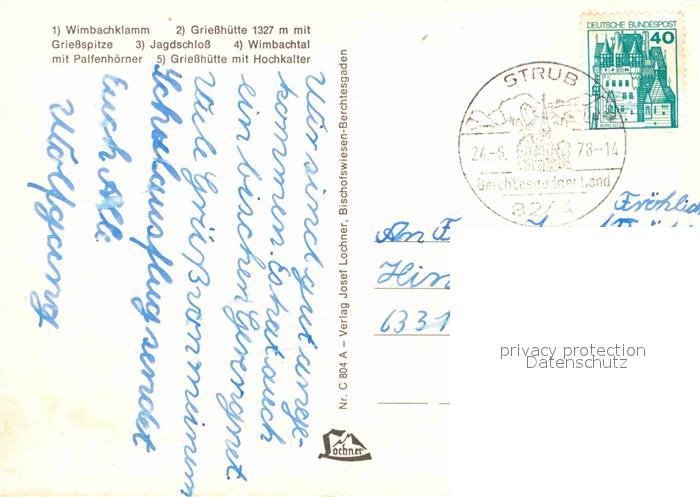 1) Wimbachklamm 2) Grießhütte 1327 m mit
Grießspitze 3) Jagdschloß 4) Wimbachtal
mit Palfenhörner 5) Grießhütte mit Hochkalter
Wir sind gut ange-
kommen. Es hat auch
ein bischen Gerengnet.
Viele Grüße von meinem
Schulausflug sendet
Euch Alle
Wolfgang
Nr. C 804 A – Verlag Josef Lochner, Bischofswiesen-Berchtesgaden
Lochner
DEUTSCHE BUNDESPOST
40
BURG ELTZ
STRUB
24.-6. 78-14
Berchtesgadner Land
Fröhlich
Am
Hin
6331
privacy protection
Datenschutz